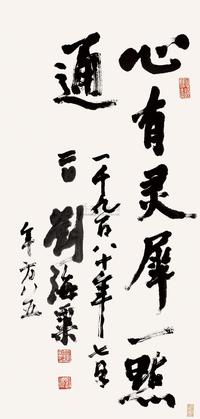 心有灵犀一點
通
一千九百八十年七月
劉海粟
年方八五